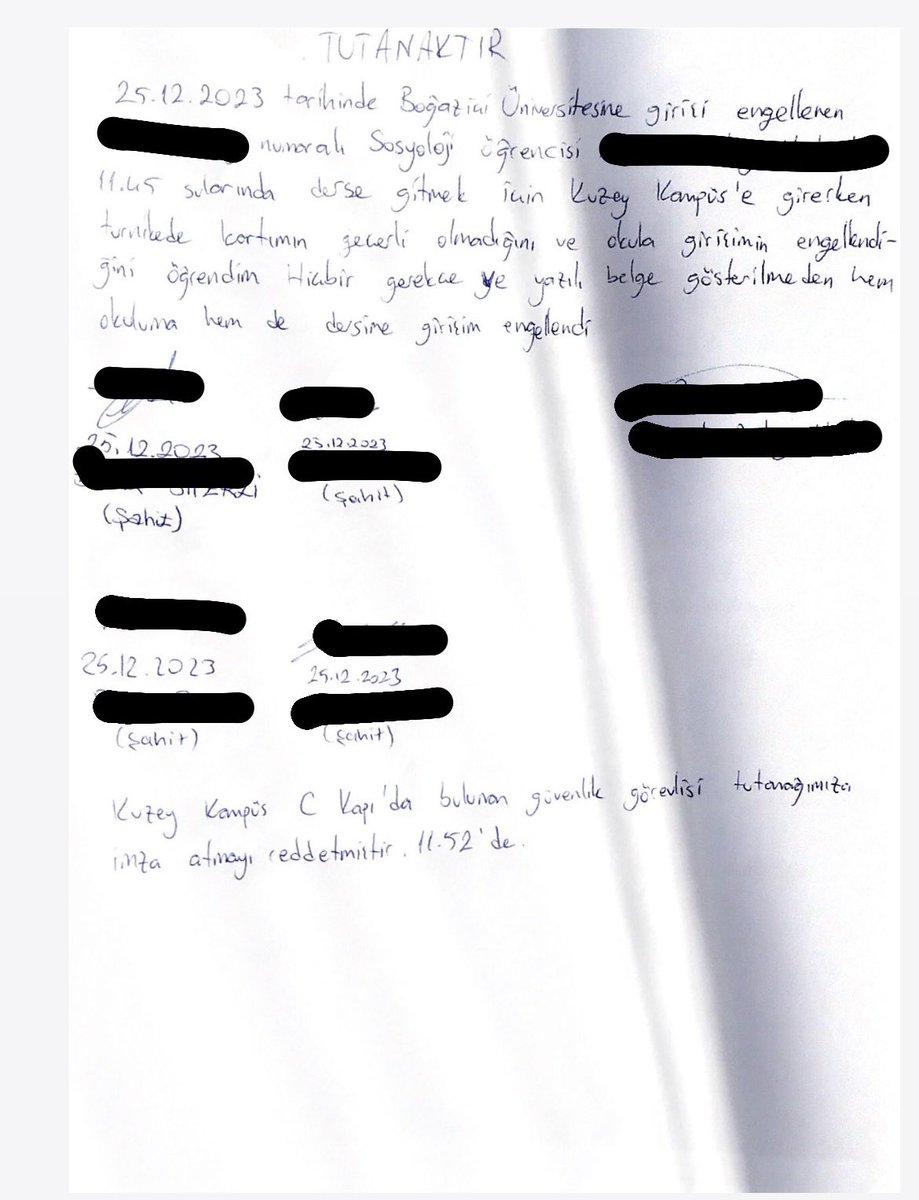 TUTANAKTIR
25.12.2023 tarihinde Boğaziçi Üniversitesine girişi engellenen
numaralı Sosyoloji öğrencisi
11.45 sularında derse gitmek için Kuzey Kampüs'e girerken
turnikede kartımın geçerli olmadığını ve okula girişimin engellendi-
ğini öğrendim Hiçbir gerekçe ve yazılı belge gösterilmeden hem
okuluma hem de dersime girişim engellendi
25.12.2023 25.12.2023
(Şahit) (Şahit)
25.12.2023 25.12.2023
(Şahit) (Şahit)
Kuzey Kampüs C Kapı'da bulunan güvenlik görevlisi tutanağımıza
imza atmayı reddetmiştir. 11.52'de.